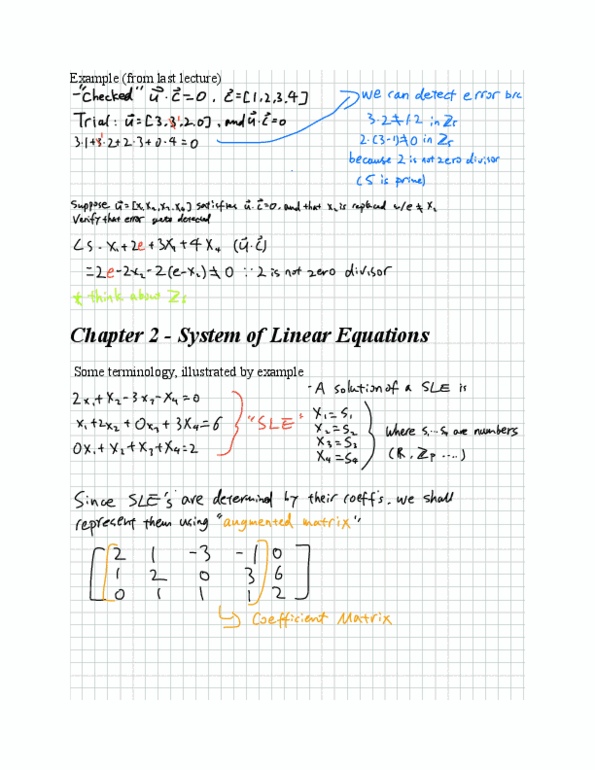 Example (from last lecture)
-"Checked" u⃗·c⃗=0, c⃗=[1,2,3,4]
Trial: u⃗=[3,3,2,0], and u⃗·c⃗=0
3·1+3·2+2·3+0·4=0
we can detect error b/c
3·2≠1·2 in Z₅
2·(3-1)≠0 in Z₅
because 2 is not zero divisor
(5 is prime)
Suppose u⃗=[x₁,x₂,x₃,x₄] satisfies u⃗·c⃗=0, and that x₂ is replaced w/e≠x₂
Verify that error gets detected
LS - x₁+2e+3x₃+4x₄ (u⃗·c⃗)
=2e-2x₂-2(e-x₂)≠0 ∵2 is not zero divisor
* think about Z₅
Chapter 2 - System of Linear Equations
Some terminology, illustrated by example
2x₁+x₂-3x₃-x₄=0
x₁+2x₂+0x₃+3x₄=6
0x₁+x₂+x₃+x₄=2
"SLE"
-A solution of a SLE is
x₁=s₁
x₂=s₂
x₃=s₃
x₄=s₄
where s₁...s₄ are numbers
(R, Zp ....)
Since SLE's are determined by their coeff's, we shall
represent them using "augmented matrix"
2 1 -3 -1 0
1 2 0 3 6
0 1 1 1 2
↳ Coefficient Matrix